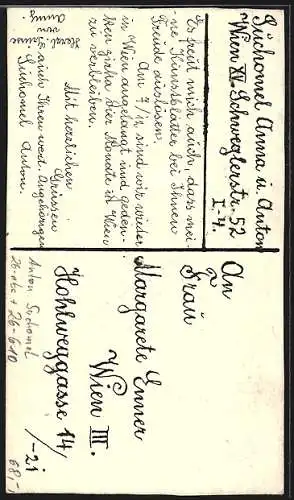 Suchomel Anna u. Anton
Wien XV. Schweglerstr. 52
I-4.
Es freut mich auch, dass mei-
ne Kunstblätter bei Ihnen
Freude auslösen.
Am 7/11 sind wir wieder
in Wien angelangt und geden-
ken zirka vier Monate in Wien
zu verbleiben.
Mit herzlichen
Grüssen
auch Ihren wert. Angehörigen
Suchomel Anton.
Herzl. Grüsse
von
Anny.
An
Frau
Margarete Enner
Wien III.
Hohlweggasse 14/
/-21
Anton Suchomel
26-6-10
68,-